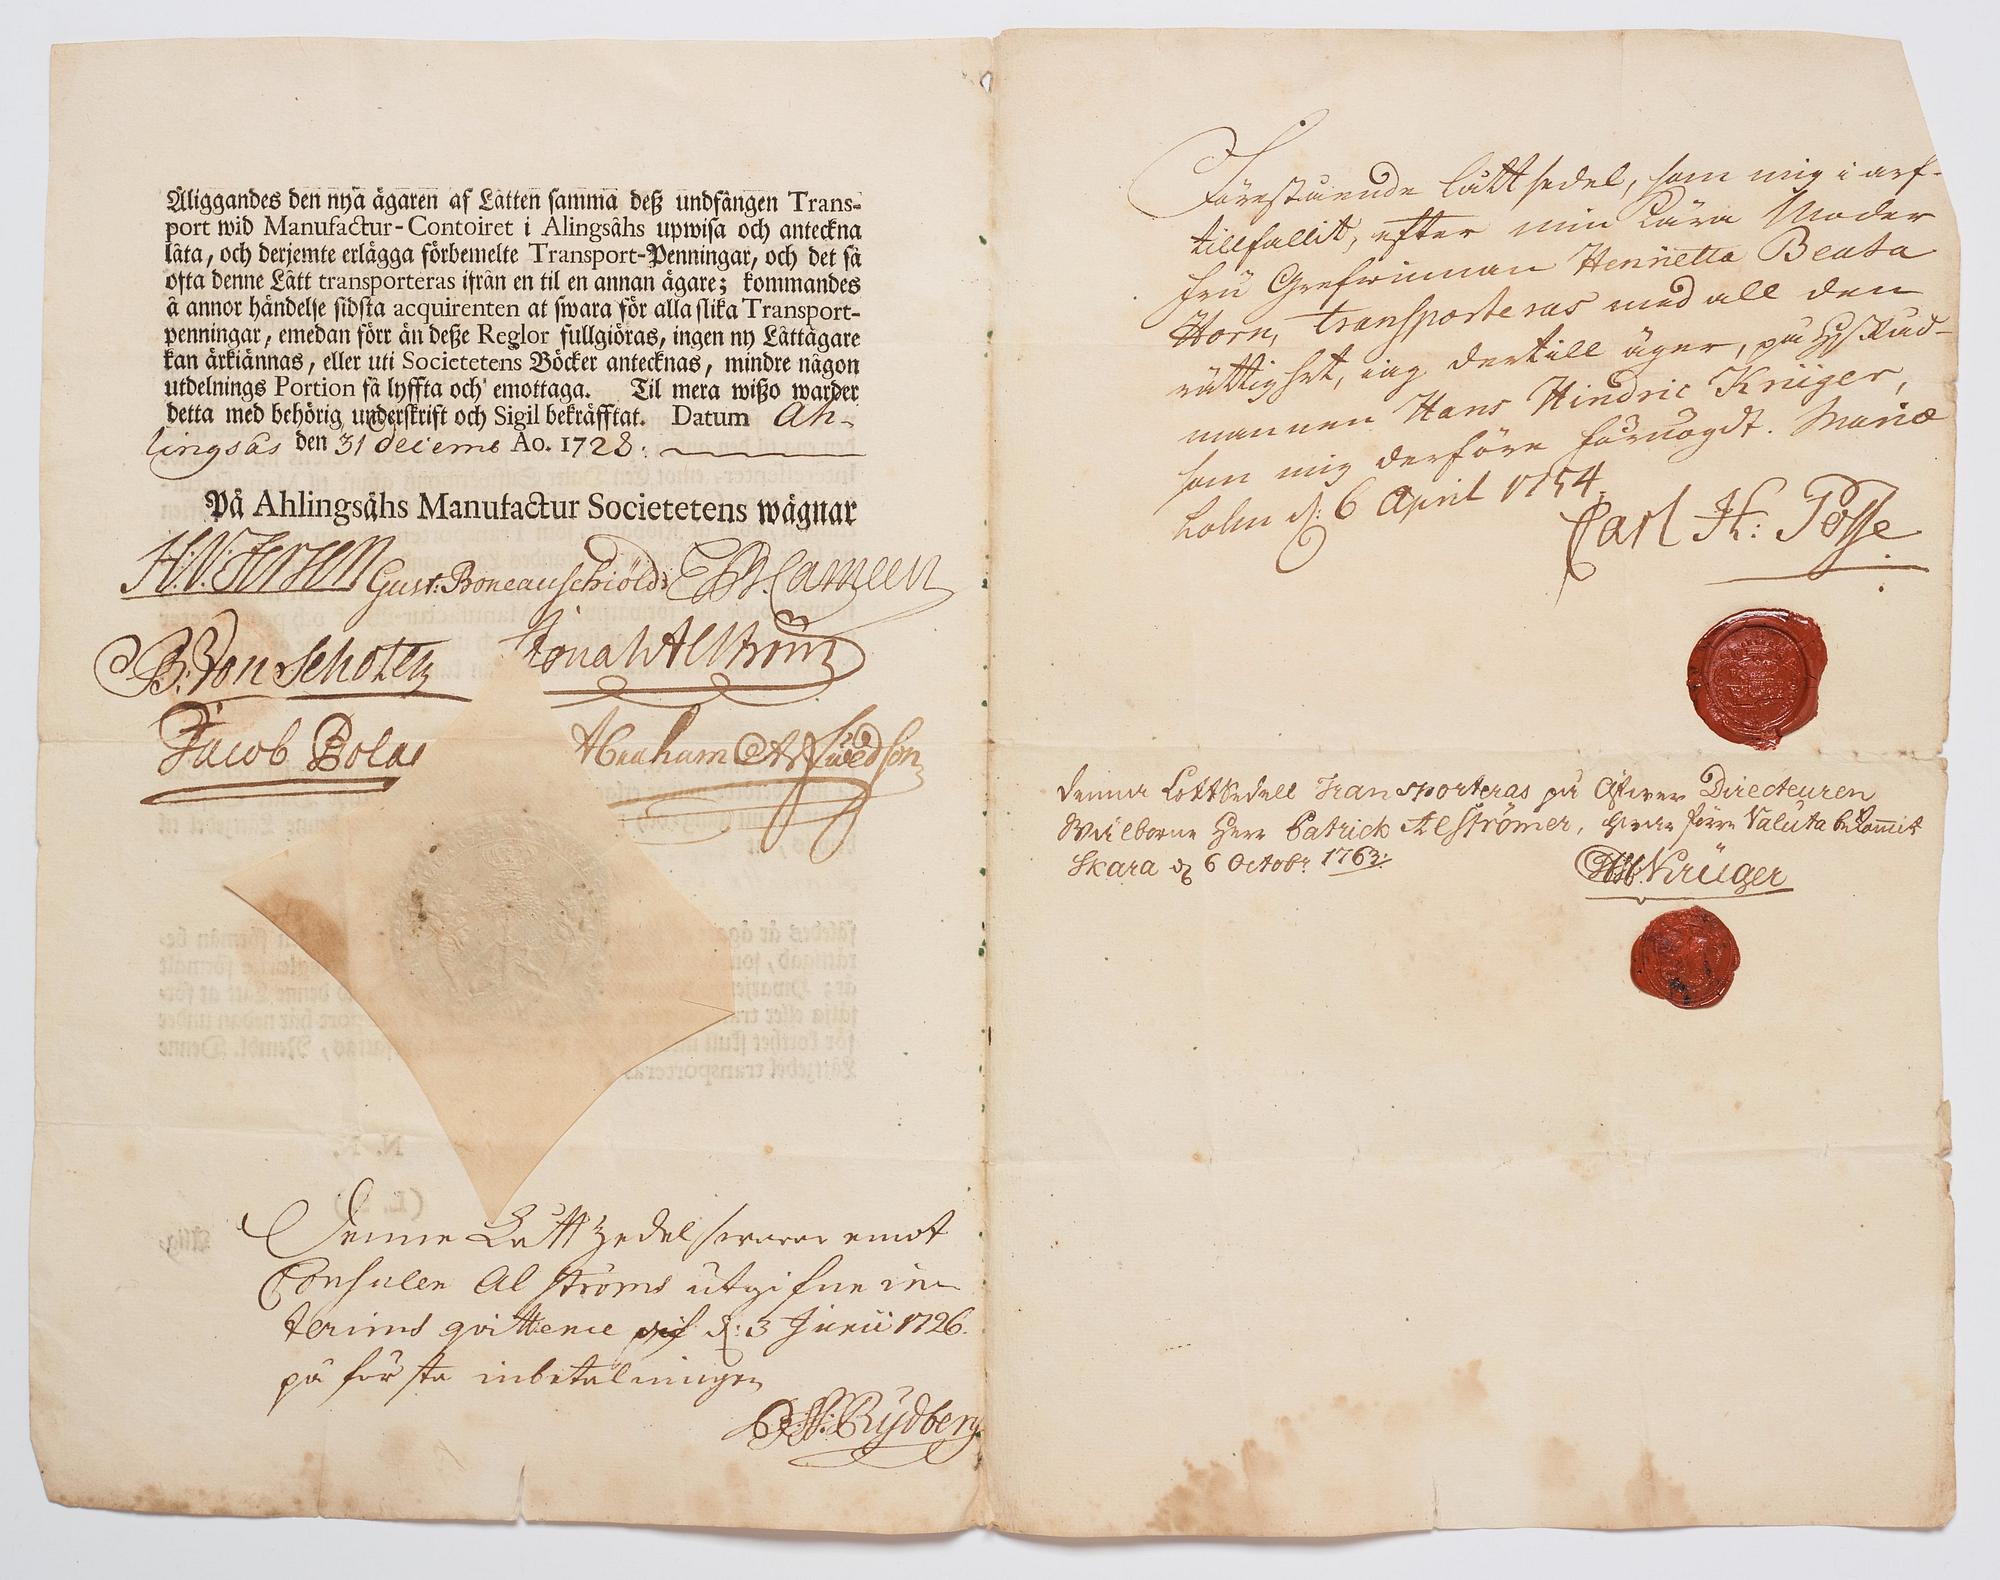 Åliggandes den nya ägaren af Låtten samma deß undfången Trans-
port wid Manufactur-Contoiret i Alingsåhs upwisa och anteckna
låta, och derjemte erlägga förbemelte Transport-Penningar, och det så
ofta denne Lått transporteras ifrån en til en annan ägare; kommandes
å annor händelse sidsta acquirenten at swara för alla slika Transport-
penningar, emedan förr än deße Reglor fullgiöras, ingen ny Låttägare
kan ärkiännas, eller uti Societetens Böcker antecknas, mindre någon
utdelnings Portion få lyffta och emottaga. Til mera wißo warder
detta med behörig underskrift och Sigil bekräfftat. Datum Ah-
lingsås den 31 Decemb Ao. 1728.
På Ahlingsåhs Manufactur Societetens wägnar
H. V. Fersen Gust: Boneauschiöld
B: Von Scholten Jonas Alström
Jacob Bolas Abraham
Denne Lått Zedel swarar emot
Consulen Alströms utgifne in-
terims qvittence d: 3 Junii 1726.
på första inbetalningen
Rydberg
Förestående låttsedel, som mig i arf-
tillfallit, efter min Kära Moder
fru Grefwinnan Henrietta Beata
Horn, transporteras med all den
rättighet, iag dertill äger, på
mannen Hans Hindric Krüger,
som mig derföre förnögdt. Mariæ
holm d: 6 April 1754.
Carl H: Posse
Denna Lottsedell Transporteras på Directeuren
Wälborne Herr Patrick Alströmer, förre Valuta bekommit
Skara d 6 Octobr 1763:
HH Krüger